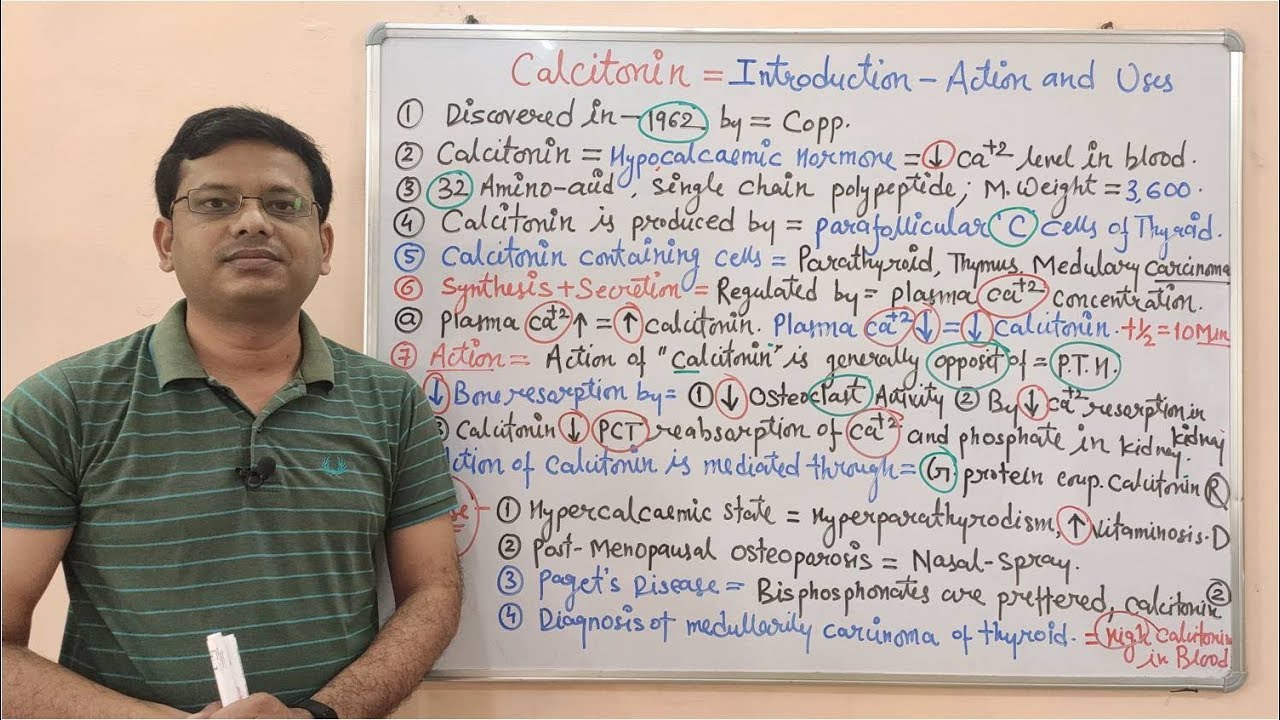 Calcitonin = Introduction - Action and Uses
① Discovered in - 1962 by = Copp.
② Calcitonin = Hypocalcaemic Hormone = ↓ Ca+2 level in blood.
③ 32 Amino-acid, single chain polypeptide; M. Weight = 3,600.
④ Calcitonin is produced by = parafollicular 'C' cells of Thyroid.
⑤ Calcitonin containing cells = Parathyroid, Thymus, Medulary carcinoma
⑥ Synthesis + Secretion = Regulated by = plasma ca+2 concentration.
ⓐ plasma ca+2 ↑ = ↑ calcitonin. Plasma ca+2 ↓ = ↓ calcitonin. t½ = 10 Min
⑦ Action = Action of "calcitonin" is generally opposit of = P.T.H.
↓ Bone resorption by = ① ↓ Osteoclast Activity ② By ↓ ca+2 resorption in kidney
③ Calcitonin ↓ PCT reabsorption of ca+2 and phosphate in kidney.
ction of calcitonin is mediated through = G protein coup. calcitonin R
se - ① Hypercalcaemic state = Hyperparathyrodism, ↑ vitaminosis-D
② Post-Menopausal osteoporosis = Nasal-Spray.
③ Paget's Disease = Bisphosphonates are preffered, calcitonin ②
④ Diagnosis of medullarily carcinoma of thyroid. = high calcitonin
in Blood